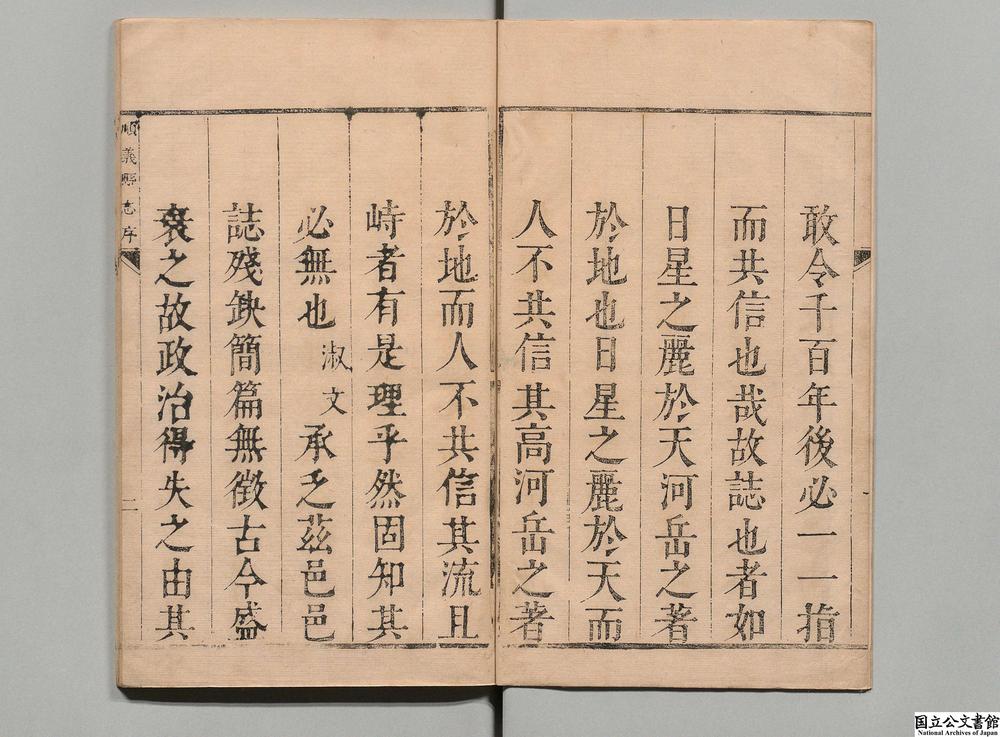 敢令千百年後必一一指
而共信也哉故誌也者如
日星之麗於天河岳之著
於地也日星之麗於天而
人不共信其高河岳之著
於地而人不共信其流且
峙者有是理乎然固知其
必無也淑文承乏茲邑邑
誌殘缺簡篇無徵古今盛
衰之故政治得失之由其
順義縣志序
二
国立公文書館
National Archives of Japan